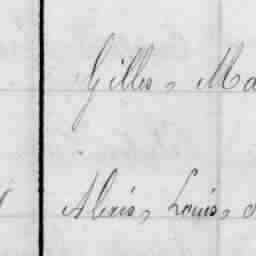 Gilles, Ma
Alexis, Louis,